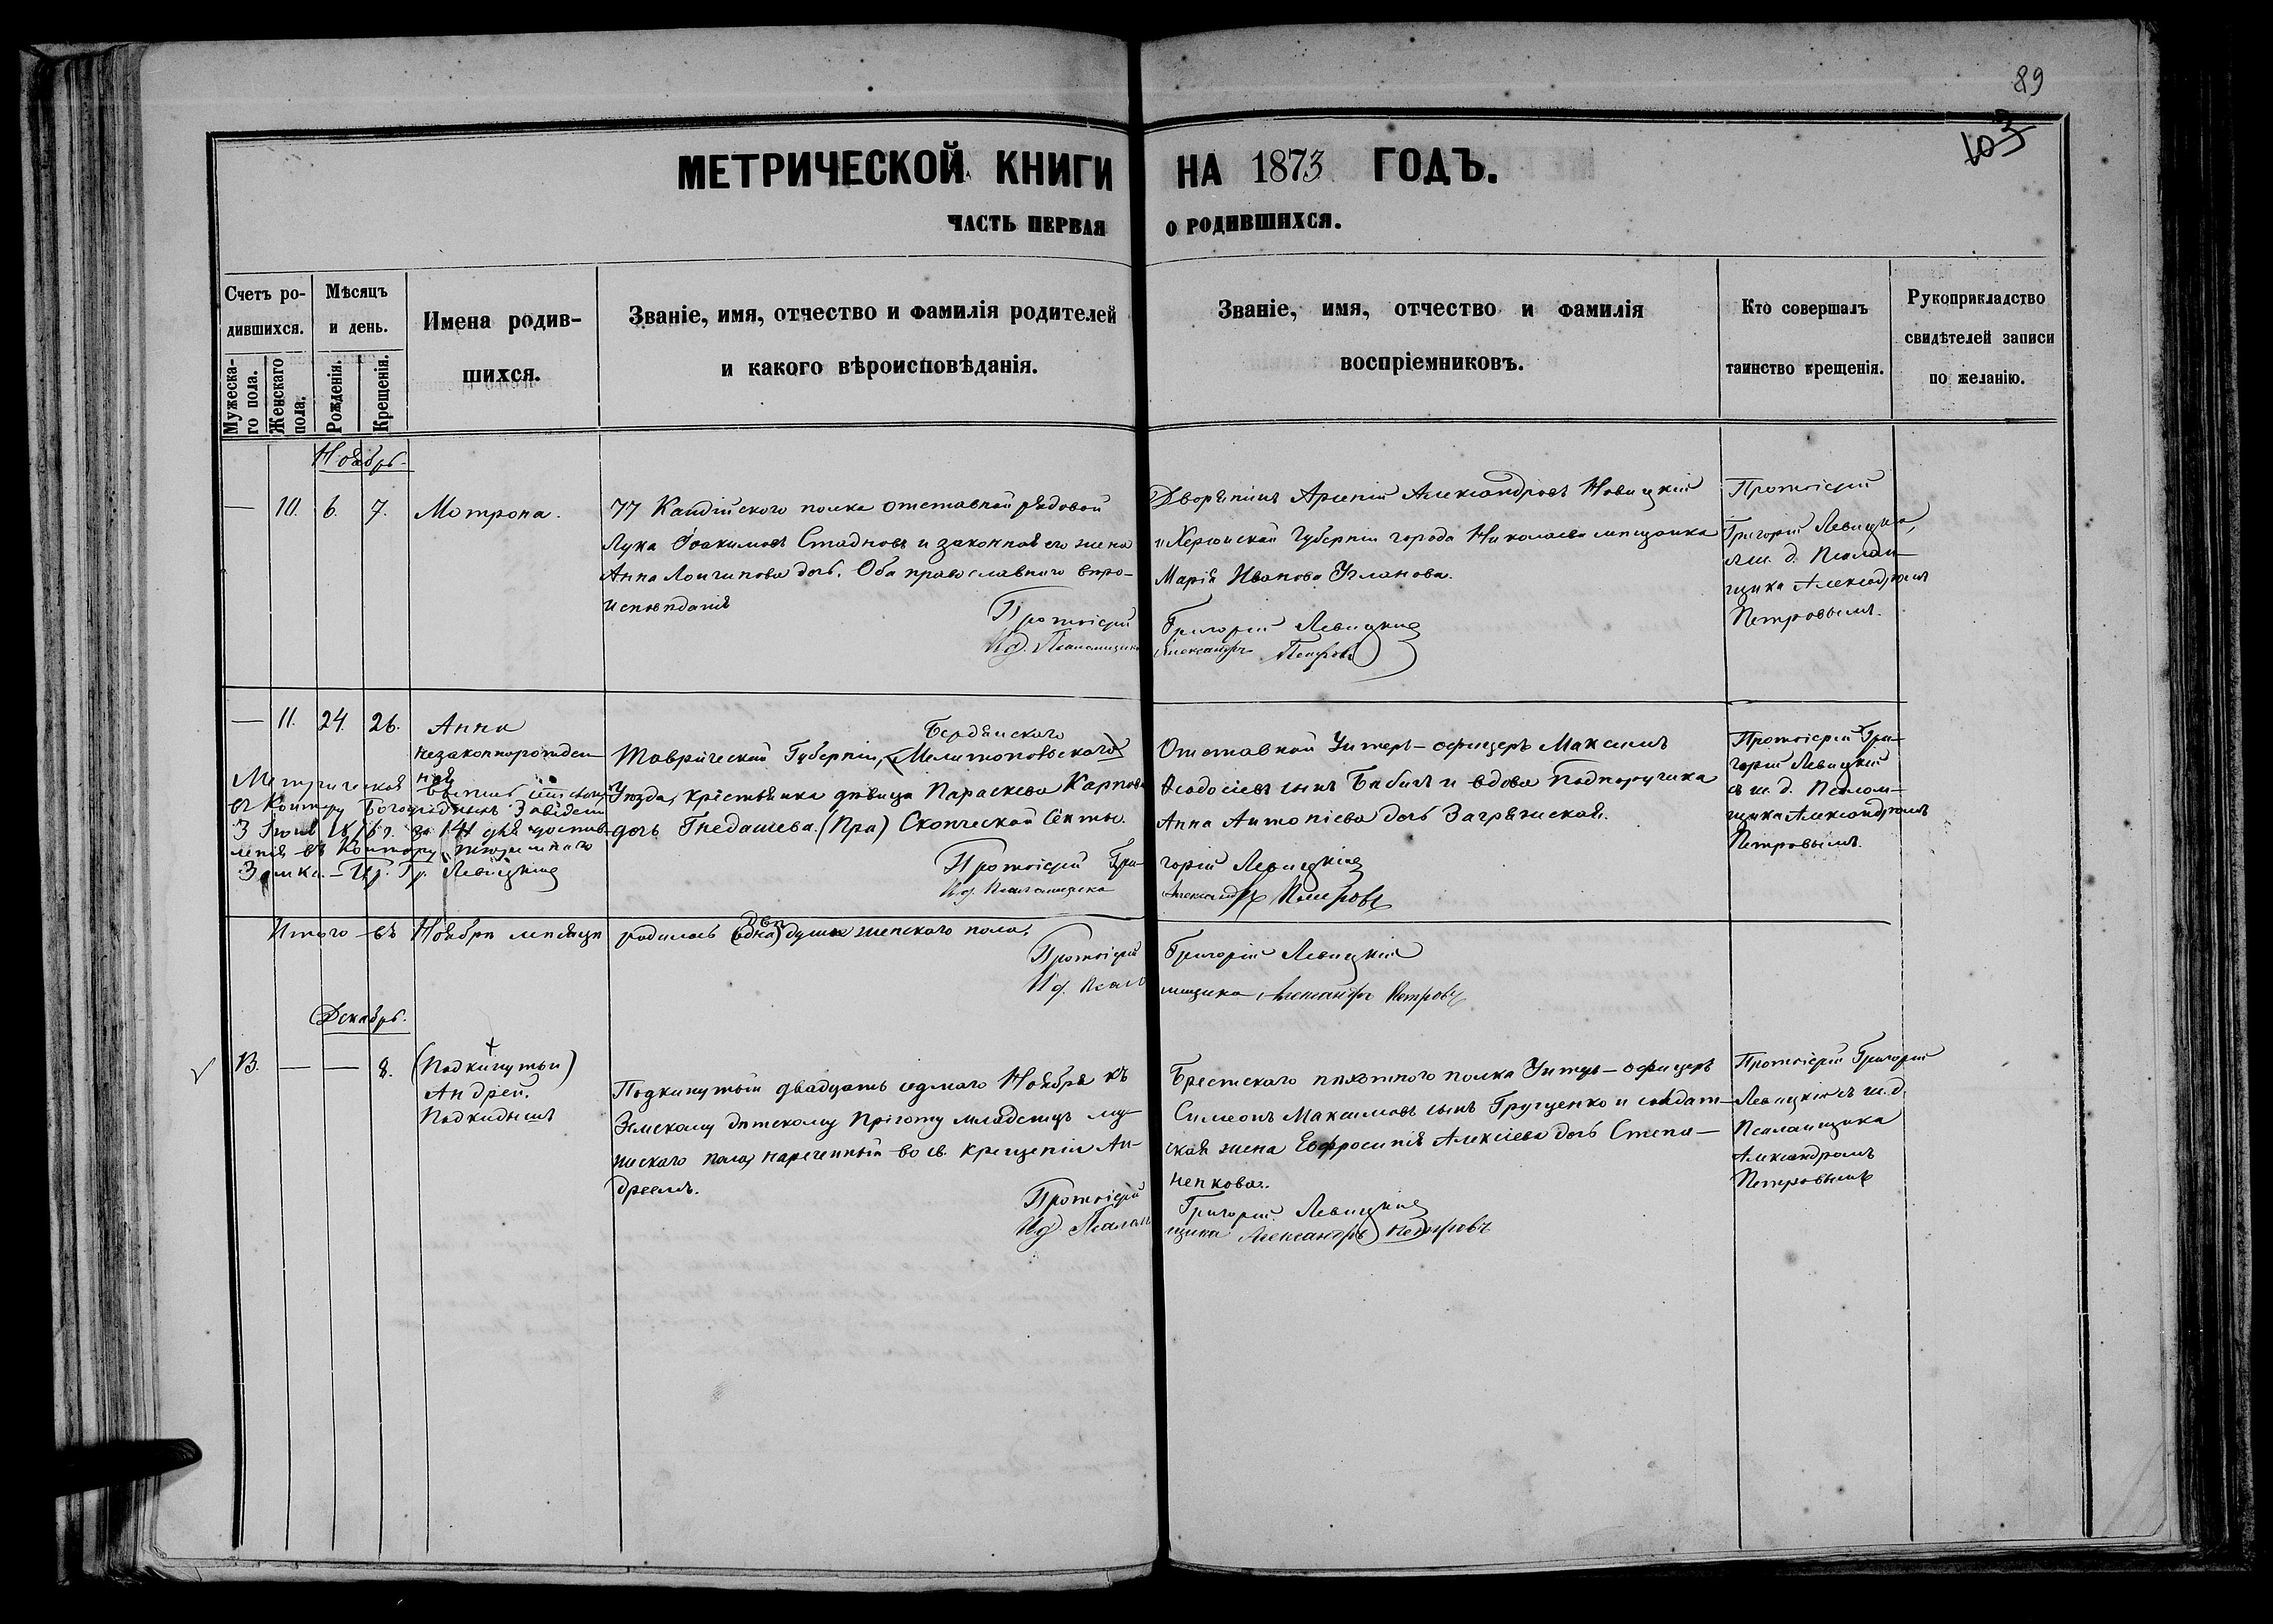 89
103
МЕТРИЧЕСКОЙ КНИГИ НА 1873 ГОДЪ.
ЧАСТЬ ПЕРВАЯ О РОДИВШИХСЯ.
Счетъ ро-
дившихся.
Мужеска-
го пола.
Женскаго
пола.
Мѣсяцъ
и день.
Рожденія.
Крещенія.
Имена родив-
шихся.
Званіе, имя, отчество и фамилія родителей
и какого вѣроисповѣданія.
Званіе, имя, отчество и фамилія
воспріемниковъ.
Кто совершалъ
таинство крещенія.
Рукоприкладство
свидѣтелей записи
по желанію.
Ноябрь.
— 10. 6. 7. Мотрона.
77 Кандійского полка отставной рядовой
Лука Іоакимовъ Стадновъ и законная его жена
Анна Лонгинова дочь. Оба православнаго вѣро-
исповѣданія
Дворянинъ Арсеній Александровъ Новицкій
и Херсонской Губерніи города Николаева мѣщанка
Марія Иванова Уланова.
Протоіерей
Григорій Левицкій,
съ и. д. Псалом-
щика Александромъ
Петровымъ.
Протоіерей Григорій Левицкій
И д. Псаломщика Александръ Петровъ
— 11. 24. 26. Анна
незаконнорожден-
ная
Метрическая
въ Контору Богоугодныхъ Заведеній
3 Іюня 1876 г. за 141 для достав-
ленія въ Контору Тюремнаго
Замка. — Пр. Гр. Левицкій
Бердянскаго
Таврической Губерніи, (Мелитопольскаго)
Уѣзда, крестьянка дѣвица Параскева Карпова
дочь Гнедашева. (Пра) Скопческой Секты.
Отставной Унтеръ-офицеръ Максимъ
Ѳеодосіевъ сынъ Бабичъ и вдова Подпоручика
Анна Антоніева дочь Загряжская.
Протоіерей Гри-
горій Левицкій
съ и. д. Псалом-
щика Александромъ
Петровымъ.
Протоіерей Гри- горій Левицкій
И д. Псаломщика Александръ Петровъ
двѣ
Итого въ Ноябрѣ мѣсяцѣ родилось (одна) души женскаго пола,
Протоіерей Григорій Левицкій
И д. Псало мщика Александръ Петровъ
Декабрь.
13. — — 8. (Подкинутый)
Андрей.
Подкидышъ
Подкинутый двадцать седмаго Ноября къ
Земскому дѣтскому Пріюту младенецъ му-
жескаго пола, нареченный во св. крещеніи Ан-
дреемъ.
Брестскаго пѣхотного полка Унтеръ-офицеръ
Симеонъ Максимовъ сынъ Грущенко и солдат-
ская жена Евфросинія Алексіева дочь Степа-
ненкова.
Протоіерей Григорій
Левицкій съ и. д.
Псаломщика
Александромъ
Петровымъ
Протоіерей Григорій Левицкій
И д. Псалом щика Александръ Петровъ